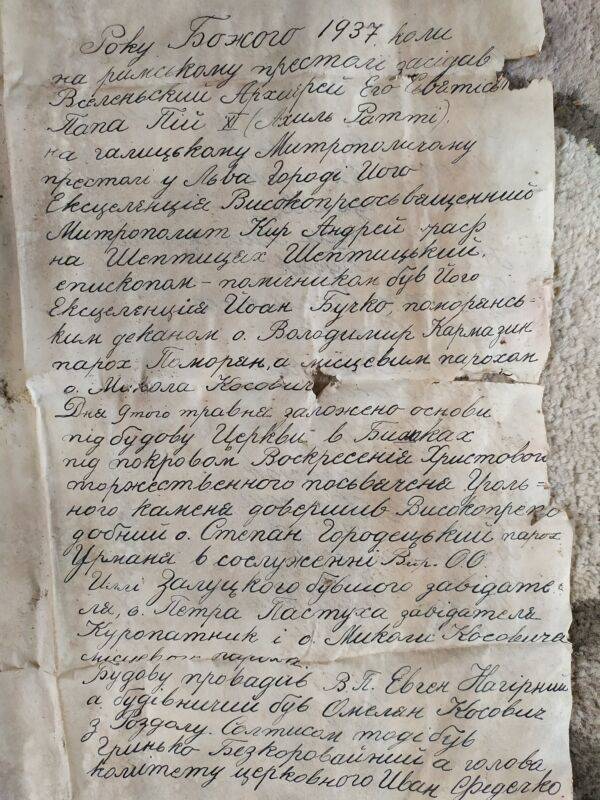 Року Божого 1937. коли
на римському престолі засідав
Вселеньский Архиєрей Его Святість
Папа Пій XI (Ахиль Ратті).
на галицькому Митрополичому
престолі у Льва Городі Його
Ексцеленція Високопреосьвященний
Митрополит Кир Андрей граф
на Шептицах Шептицький.
єпископом-помічником був Його
Ексцеленція Йоан Бучко, поморянсь-
ким деканом о. Володимир Кармазин
парох Поморян, а місцевим парохом
о. Микола Косович
Дня 9того травня заложено основи
під будову Церкви в Бишках
під покровом Воскресенія Христового
торжественного посьвяченя Уголь=
ного каменя довершив Високопрепо
добний о. Степан Городецький парох
Урманя в сослуженні Впр. ОО
Іллі Залуцкого бувшого завідате-
ля, о. Петра Пастуха завідателя
Куропатник і о. Миколи Косовича
місцевого пароха.
Будову провадив В.П. Евген Нагірний
а будівничий був Омелян Косович
з Роздолу. Солтисом тоді був
Гринько Безкоровайний а голова
комітету церковного Иван Середечко.